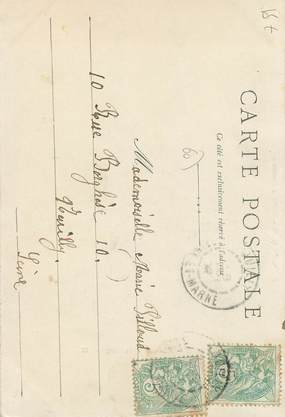 CARTE POSTALE
Ce côté est exclusivement réservé à l'adresse
Mademoiselle Marie Billoud
10 Rue Borghèse 10.
Neuilly.
Seine
60
ET-MARNE
5